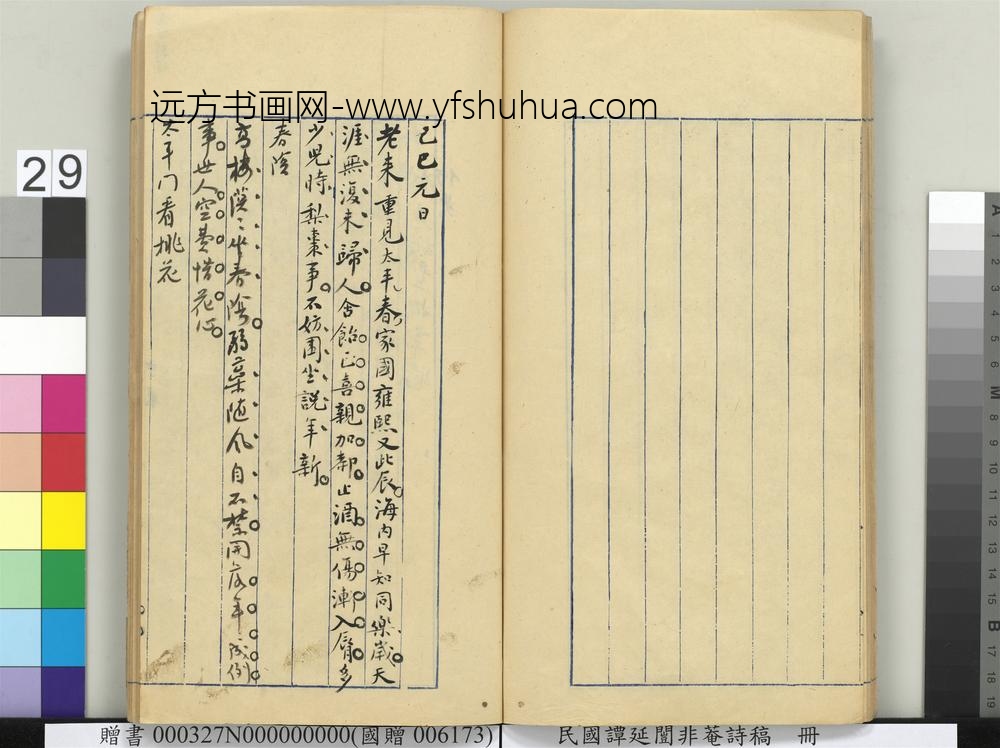 远方书画网-www.yfshuhua.com
己巳元日
老来重見太平春家國雍熙又此辰海内早知同樂歲天
涯無復未歸人含飴正喜親加鄰止酒無傷漸入脣多
少兒時梨棗事不妨圍坐説年新
春陰
隂弱葉随風自不禁開落年年成例
事世人空費惜花心
太平门看桃花
29
A 1 2 3 4 5 6 M 8 9 10 11 12 13 14 15 B 17 18 19
贈書 000327N000000000(國贈 006173)
民國譚延闓非菴詩稿 冊